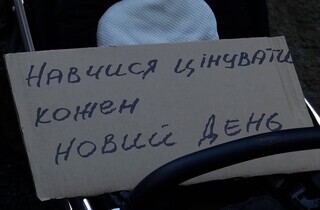 Навчися цінувати
кожен
новий день